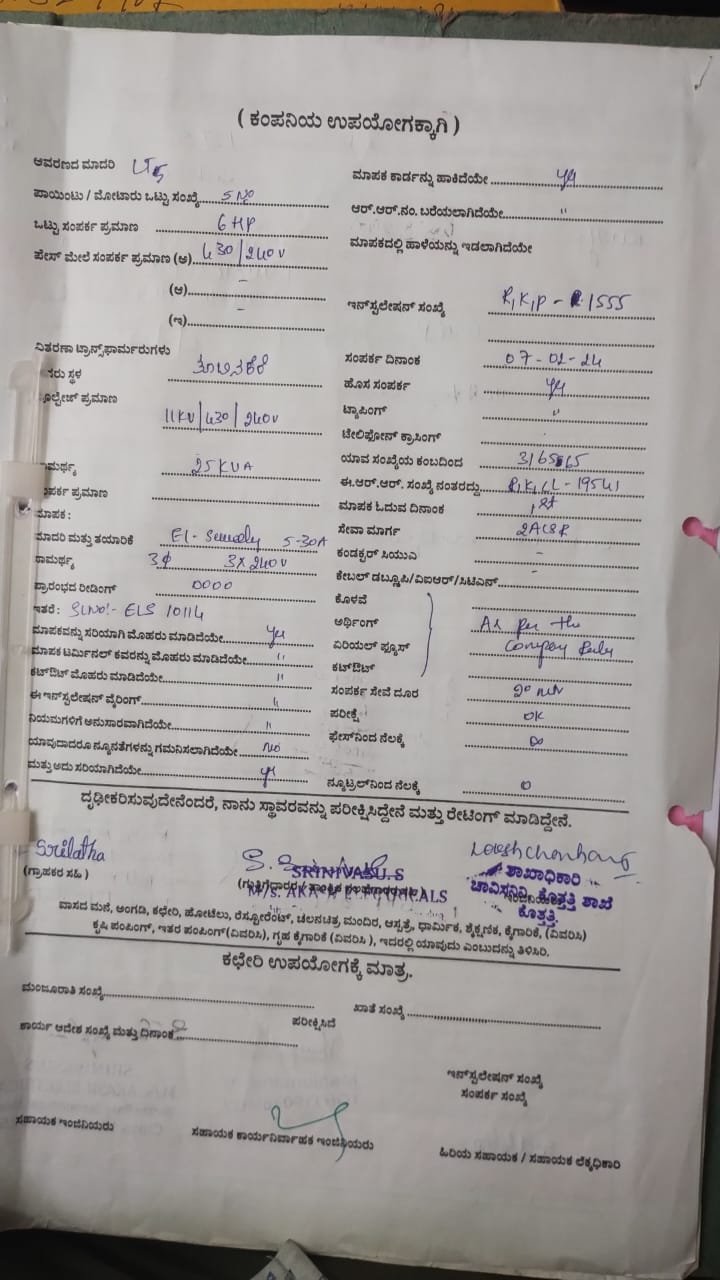 ( ಕಂಪನಿಯ ಉಪಯೋಗಕ್ಕಾಗಿ )
ಆವರಣದ ಮಾದರಿ
ಪಾಯಿಂಟು / ಮೋಟಾರು ಒಟ್ಟು ಸಂಖ್ಯೆ 5 No
ಒಟ್ಟು ಸಂಪರ್ಕ ಪ್ರಮಾಣ 6 HP
ಫೇಸ್ ಮೇಲೆ ಸಂಪರ್ಕ ಪ್ರಮಾಣ (ಅ) 430/240V
(ಆ) -
(ಇ) -
ವಿತರಣಾ ಟ್ರಾನ್ಸ್‌ಫಾರ್ಮರುಗಳು
ಸರು ಸ್ಥಳ
ಪ್ರಮಾಣ
11KV/430/240V
ಸಾಮರ್ಥ್ಯ 25KVA
ಸಂಪರ್ಕ ಪ್ರಮಾಣ
ಮಾಪಕ :
ಮಾದರಿ ಮತ್ತು ತಯಾರಿಕೆ 5-30A
ಸಾಮರ್ಥ್ಯ 3ϕ 3x240V
ಪ್ರಾರಂಭದ ರೀಡಿಂಗ್ 0000
ಇತರೆ : SLNo:- ELS 10114
ಮಾಪಕವನ್ನು ಸರಿಯಾಗಿ ಮೊಹರು ಮಾಡಿದೆಯೇ yes
ಮಾಪಕ ಟರ್ಮಿನಲ್ ಕವರನ್ನು ಮೊಹರು ಮಾಡಿದೆಯೇ "
ಕಟ್‌ಔಟ್ ಮೊಹರು ಮಾಡಿದೆಯೇ "
ಈ ಇನ್‌ಸ್ಟಲೇಷನ್ ವೈರಿಂಗ್ "
ನಿಯಮಗಳಿಗೆ ಅನುಸಾರವಾಗಿದೆಯೇ "
ಯಾವುದಾದರೂ ನ್ಯೂನತೆಗಳನ್ನು ಗಮನಿಸಲಾಗಿದೆಯೇ No
ಮತ್ತು ಅದು ಸರಿಯಾಗಿದೆಯೇ yes
ಮಾಪಕ ಕಾರ್ಡನ್ನು ಹಾಕಿದೆಯೇ yes
ಆರ್.ಆರ್.ನಂ. ಬರೆಯಲಾಗಿದೆಯೇ "
ಮಾಪಕದಲ್ಲಿ ಹಾಳೆಯನ್ನು ಇಡಲಾಗಿದೆಯೇ
ಇನ್‌ಸ್ಟಲೇಷನ್ ಸಂಖ್ಯೆ R,K,P - 1555
ಸಂಪರ್ಕ ದಿನಾಂಕ 07-02-24
ಹೊಸ ಸಂಪರ್ಕ yes
ಟ್ಯಾಪಿಂಗ್ "
ಟೆಲಿಫೋನ್ ಕ್ರಾಸಿಂಗ್
ಯಾವ ಸಂಖ್ಯೆಯ ಕಂಬದಿಂದ
ಈ.ಆರ್.ಆರ್. ಸಂಖ್ಯೆ ನಂತರದ್ದು R,K,LL - 19541
ಮಾಪಕ ಓದುವ ದಿನಾಂಕ 1st
ಸೇವಾ ಮಾರ್ಗ 2ACSR
ಕಂಡಕ್ಟರ್ ಸಿಯುಎ -
ಕೇಬಲ್ ಡಬ್ಲೂಪಿ/ವಿಐಆರ್/ಸಿಟಿಎಸ್ -
ಕೊಳವೆ
ಅರ್ಥಿಂಗ್ As per the
ಏರಿಯಲ್ ಫ್ಯೂಸ್ Company Rules
ಕಟ್‌ಔಟ್
ಸಂಪರ್ಕ ಸೇವೆ ದೂರ
ಪರೀಕ್ಷೆ OK
ಫೇಸ್‌ನಿಂದ ನೆಲಕ್ಕೆ ∞
ನ್ಯೂಟ್ರಲ್‌ನಿಂದ ನೆಲಕ್ಕೆ 0
ದೃಢೀಕರಿಸುವುದೇನೆಂದರೆ, ನಾನು ಸ್ಥಾವರವನ್ನು ಪರೀಕ್ಷಿಸಿದ್ದೇನೆ ಮತ್ತು ರೇಟಿಂಗ್ ಮಾಡಿದ್ದೇನೆ.
Srilatha
(ಗ್ರಾಹಕರ ಸಹಿ)
SRINIVASU.S
ಶಾಖಾಧಿಕಾರಿ
ಚಾವಿಸನಿನಿ, ಕೊತ್ತತ್ತಿ ಶಾಖೆ
ಕೊತ್ತತ್ತಿ.
ವಾಸದ ಮನೆ, ಅಂಗಡಿ, ಕಛೇರಿ, ಹೋಟೆಲು, ರೆಸ್ಟೋರೆಂಟ್, ಚಲನಚಿತ್ರ ಮಂದಿರ, ಆಸ್ಪತ್ರೆ, ಧಾರ್ಮಿಕ, ಶೈಕ್ಷಣಿಕ, ಕೈಗಾರಿಕೆ, (ವಿವರಿಸಿ)
ಕೃಷಿ ಪಂಪಿಂಗ್, ಇತರ ಪಂಪಿಂಗ್(ವಿವರಿಸಿ), ಗೃಹ ಕೈಗಾರಿಕೆ (ವಿವರಿಸಿ ), ಇದರಲ್ಲಿ ಯಾವುದು ಎಂಬುದನ್ನು ತಿಳಿಸಿರಿ.
ಕಛೇರಿ ಉಪಯೋಗಕ್ಕೆ ಮಾತ್ರ.
ಮಂಜೂರಾತಿ ಸಂಖ್ಯೆ
ಖಾತೆ ಸಂಖ್ಯೆ
ಪರೀಕ್ಷಿಸಿದೆ
ಕಾರ್ಯ ಆದೇಶ ಸಂಖ್ಯೆ ಮತ್ತು ದಿನಾಂಕ
ಇನ್‌ಸ್ಟಲೇಷನ್ ಸಂಖ್ಯೆ
ಸಂಪರ್ಕ ಸಂಖ್ಯೆ
ಸಹಾಯಕ ಇಂಜಿನಿಯರು
ಸಹಾಯಕ ಕಾರ್ಯನಿರ್ವಾಹಕ ಇಂಜಿನಿಯರು
ಹಿರಿಯ ಸಹಾಯಕ / ಸಹಾಯಕ ಲೆಕ್ಕಧಿಕಾರಿ